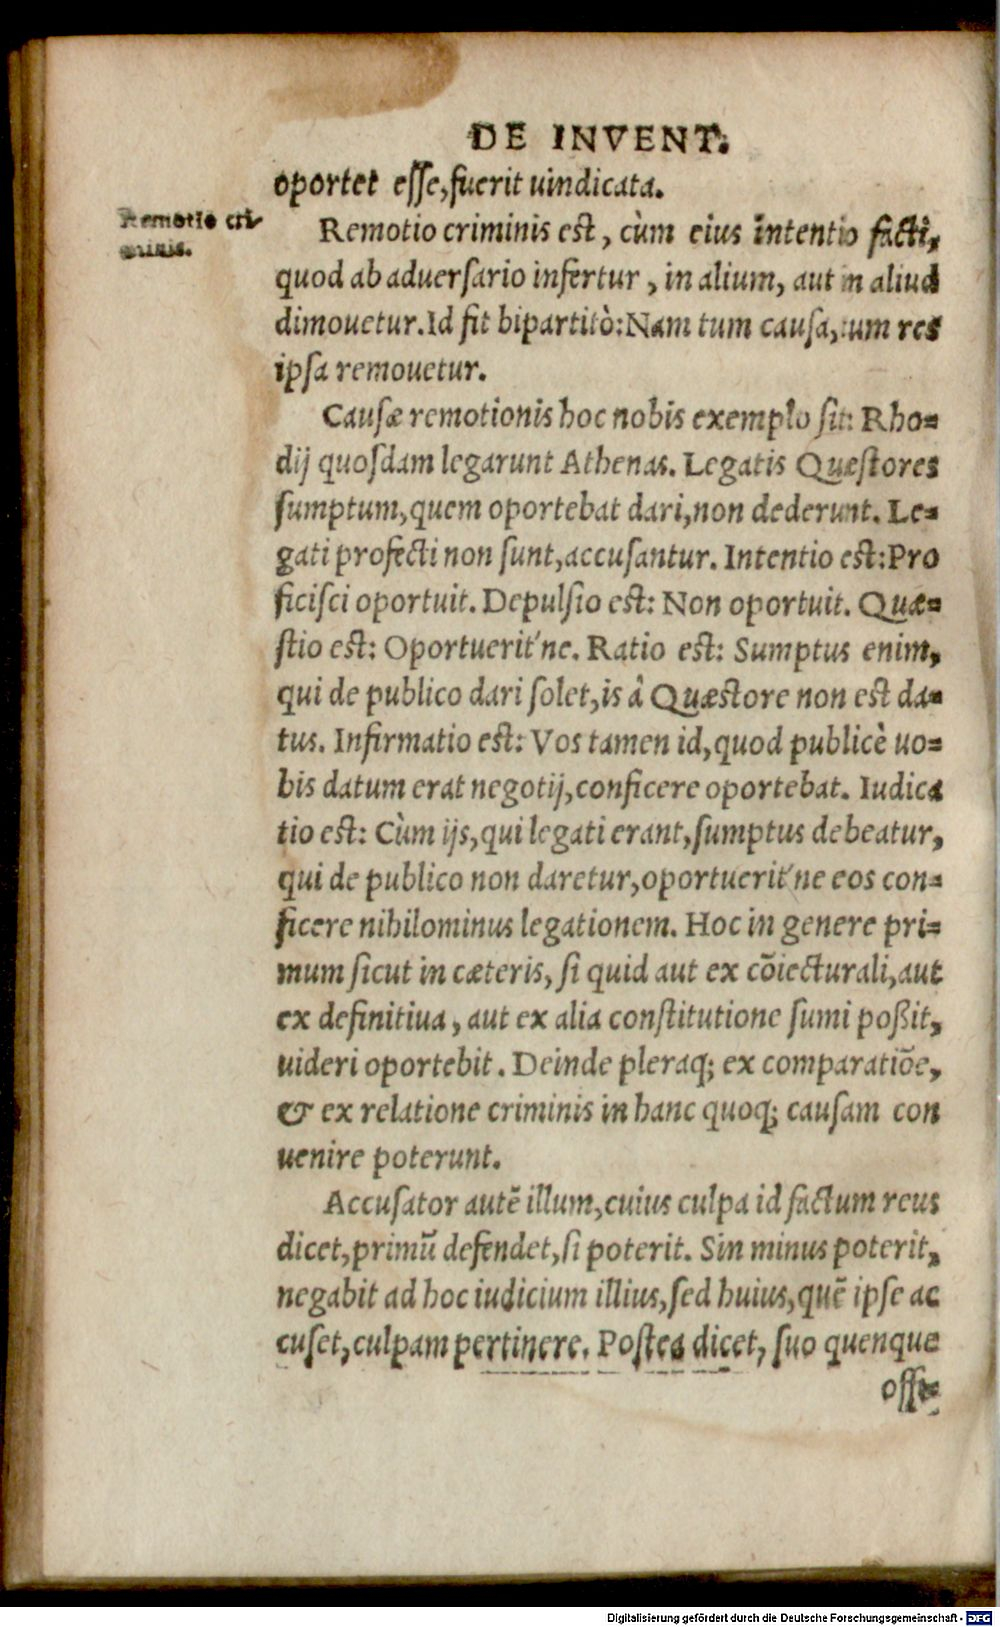 DE INVENT.
oportet esse, fuerit uindicata.
Remotio cri-
minis.
Remotio criminis est, cùm eius intentio facti,
quod ab aduersario infertur, in alium, aut in aliud
dimouetur. Id fit bipartitò: Nam tum causa, tum res
ipsa remouetur.
Causæ remotionis hoc nobis exemplo sit: Rho-
dij quosdam legarunt Athenas. Legatis Quæstores
sumptum, quem oportebat dari, non dederunt. Le-
gati profecti non sunt, accusantur. Intentio est: Pro
ficisci oportuit. Depulsio est: Non oportuit. Quæ-
stio est: Oportuerit'ne. Ratio est: Sumptus enim,
qui de publico dari solet, is â Quæstore non est da-
tus. Infirmatio est: Vos tamen id, quod publicè uo-
bis datum erat negotij, conficere oportebat. Iudica
tio est: Cùm ijs, qui legati erant, sumptus debeatur,
qui de publico non daretur, oportuerit'ne eos con-
ficere nihilominus legationem. Hoc in genere pri-
mum sicut in cæteris, si quid aut ex cōiecturali, aut
ex definitiua, aut ex alia constitutione sumi poßit,
uideri oportebit. Deinde pleraq; ex comparatiōe,
& ex relatione criminis in hanc quoq; causam con
uenire poterunt.
Accusator autē illum, cuius culpa id factum reus
dicet, primū defendet, si poterit. Sin minus poterit,
negabit ad hoc iudicium illius, sed huius, quē ipse ac
cuset, culpam pertinere. Postea dicet, suo quenque
offi-
Digitalisierung gefördert durch die Deutsche Forschungsgemeinschaft - DFG